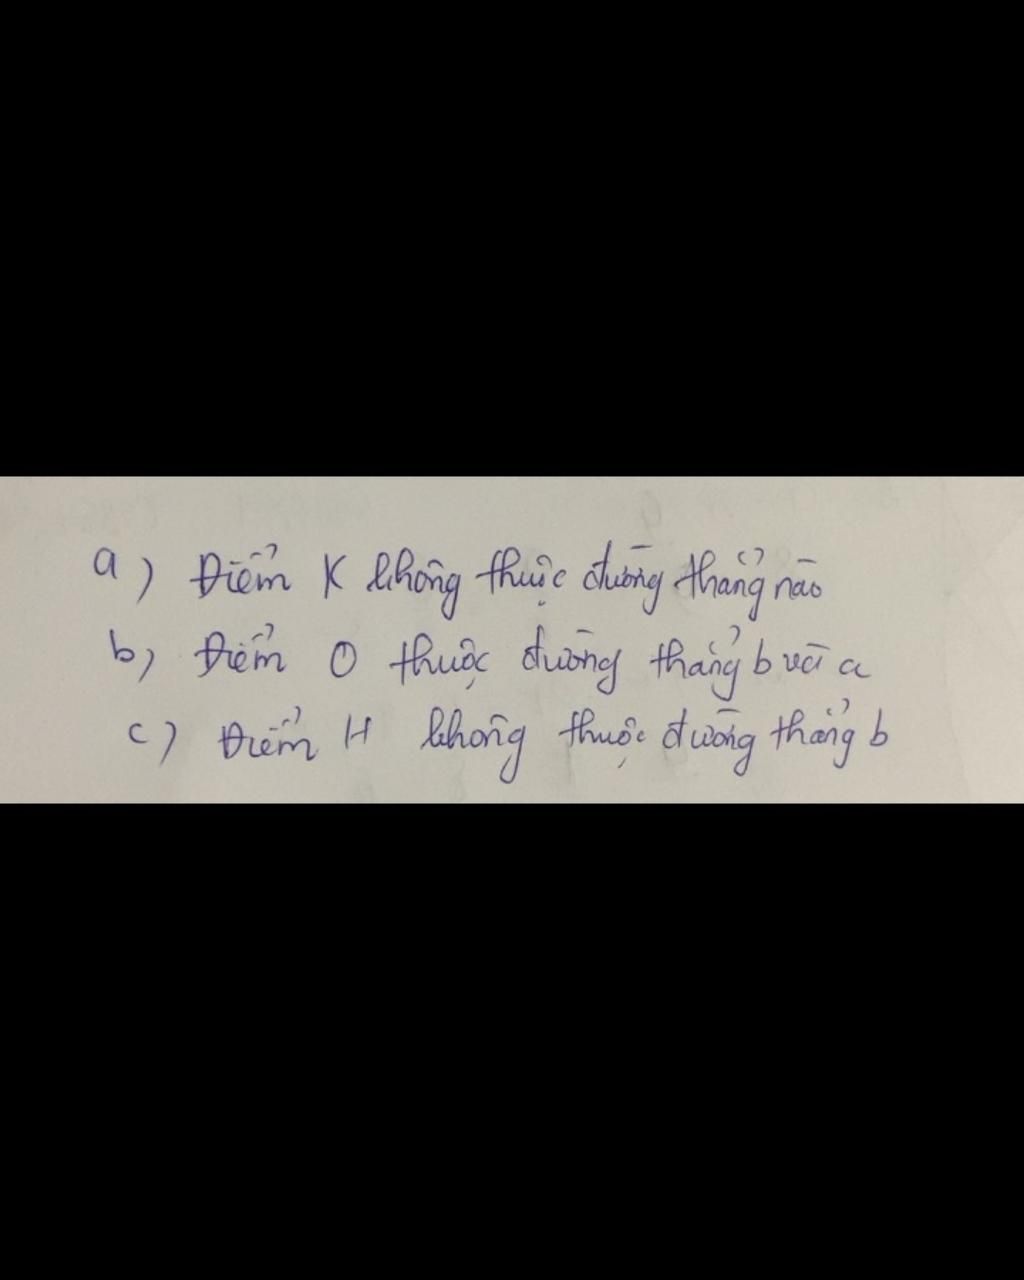 a) Điểm K không thuộc đường thẳng nào
b) Điểm O thuộc đường thẳng b với a
c) Điểm H không thuộc đường thẳng b